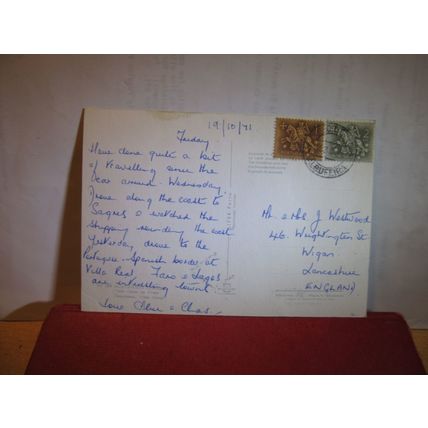 19/10/71
Friday
Have done quite a bit
of travelling since the
car arrived Wednesday.
Drove along the coast to
Sagres & watched the
shipping rounding the coast
Yesterday drove to the
Portuguese-Spanish border at
Villa Real, Faro & Lagos
are interesting towns
Love & Chas.
Mr. & Mrs J Westwood
46, Wrightington St
Wigan
Lancashire
ENGLAND